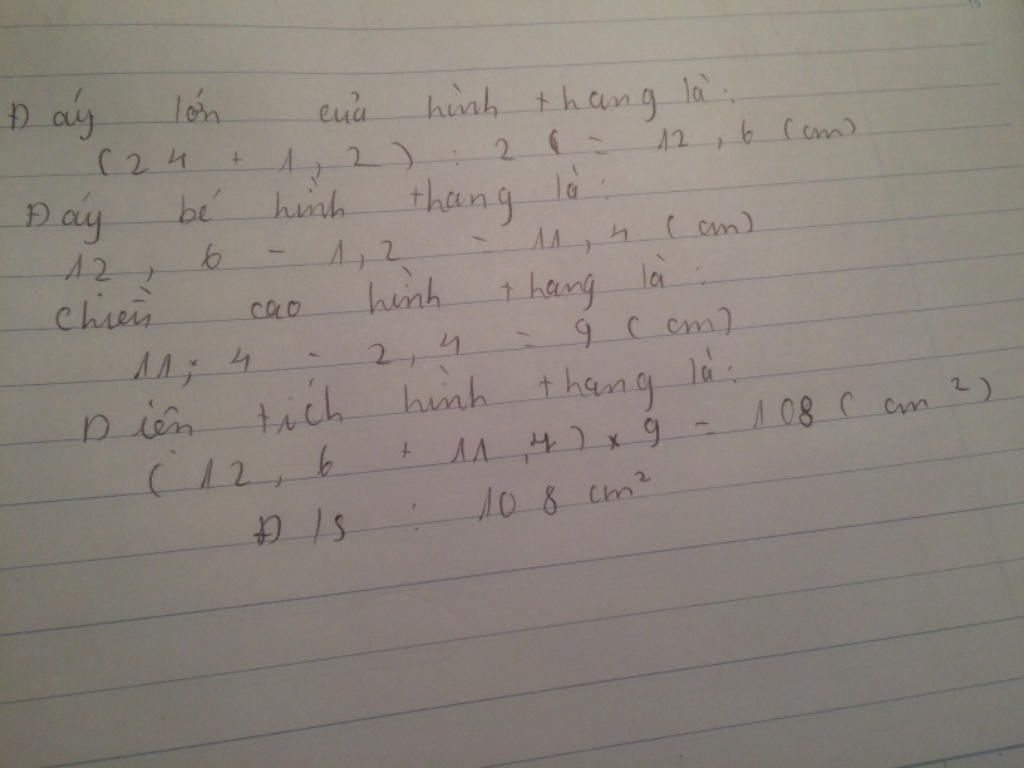 Đáy lớn của hình thang là:
(24 + 1,2) : 2 = 12,6 (cm)
Đáy bé hình thang là:
12,6 - 1,2 = 11,4 (cm)
Chiền cao hình thang là:
11,4 - 2,4 = 9 (cm)
Diên tích hình thang là:
(12,6 + 11,4) × 9 = 108 (cm²)
Đ/S : 108 cm²